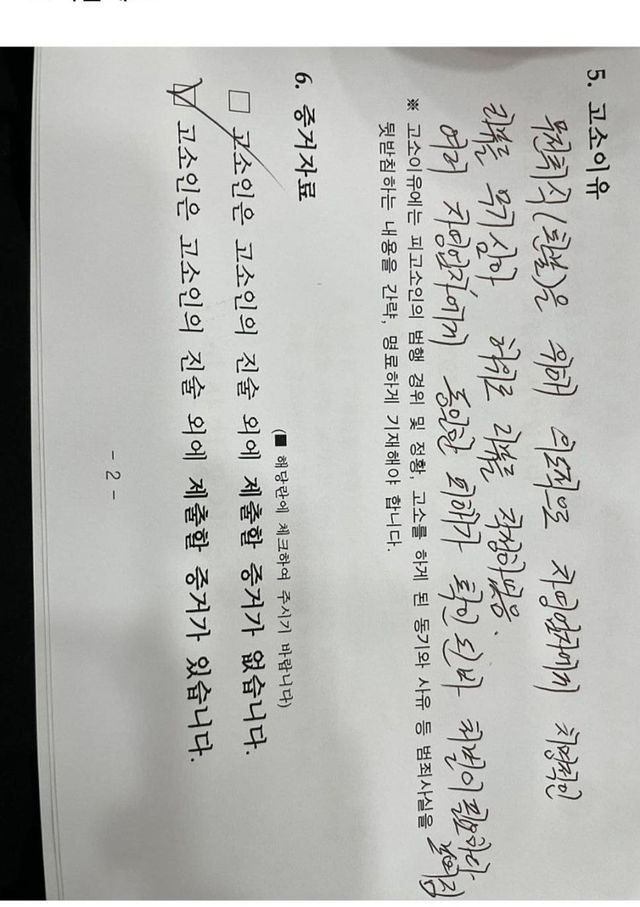 5. 고소이유
무전취식(환불)은 위해 의도적으로 자영업자에게 치명적인
리뷰를 무기삼아 허위로 리뷰를 작성하였음.
여러 자영업자에게 동일한 피해가 확인 된바 처벌이 필요하다
※ 고소이유에는 피고소인의 범행 경위 및 정황, 고소를 하게 된 동기와 사유 등 범죄사실을
뒷받침하는 내용을 간략, 명료하게 기재해야 합니다.
6. 증거자료
(■ 해당란에 체크하여 주시기 바랍니다)
□ 고소인은 고소인의 진술 외에 제출할 증거가 없습니다.
☑ 고소인은 고소인의 진술 외에 제출할 증거가 있습니다.
- 2 -